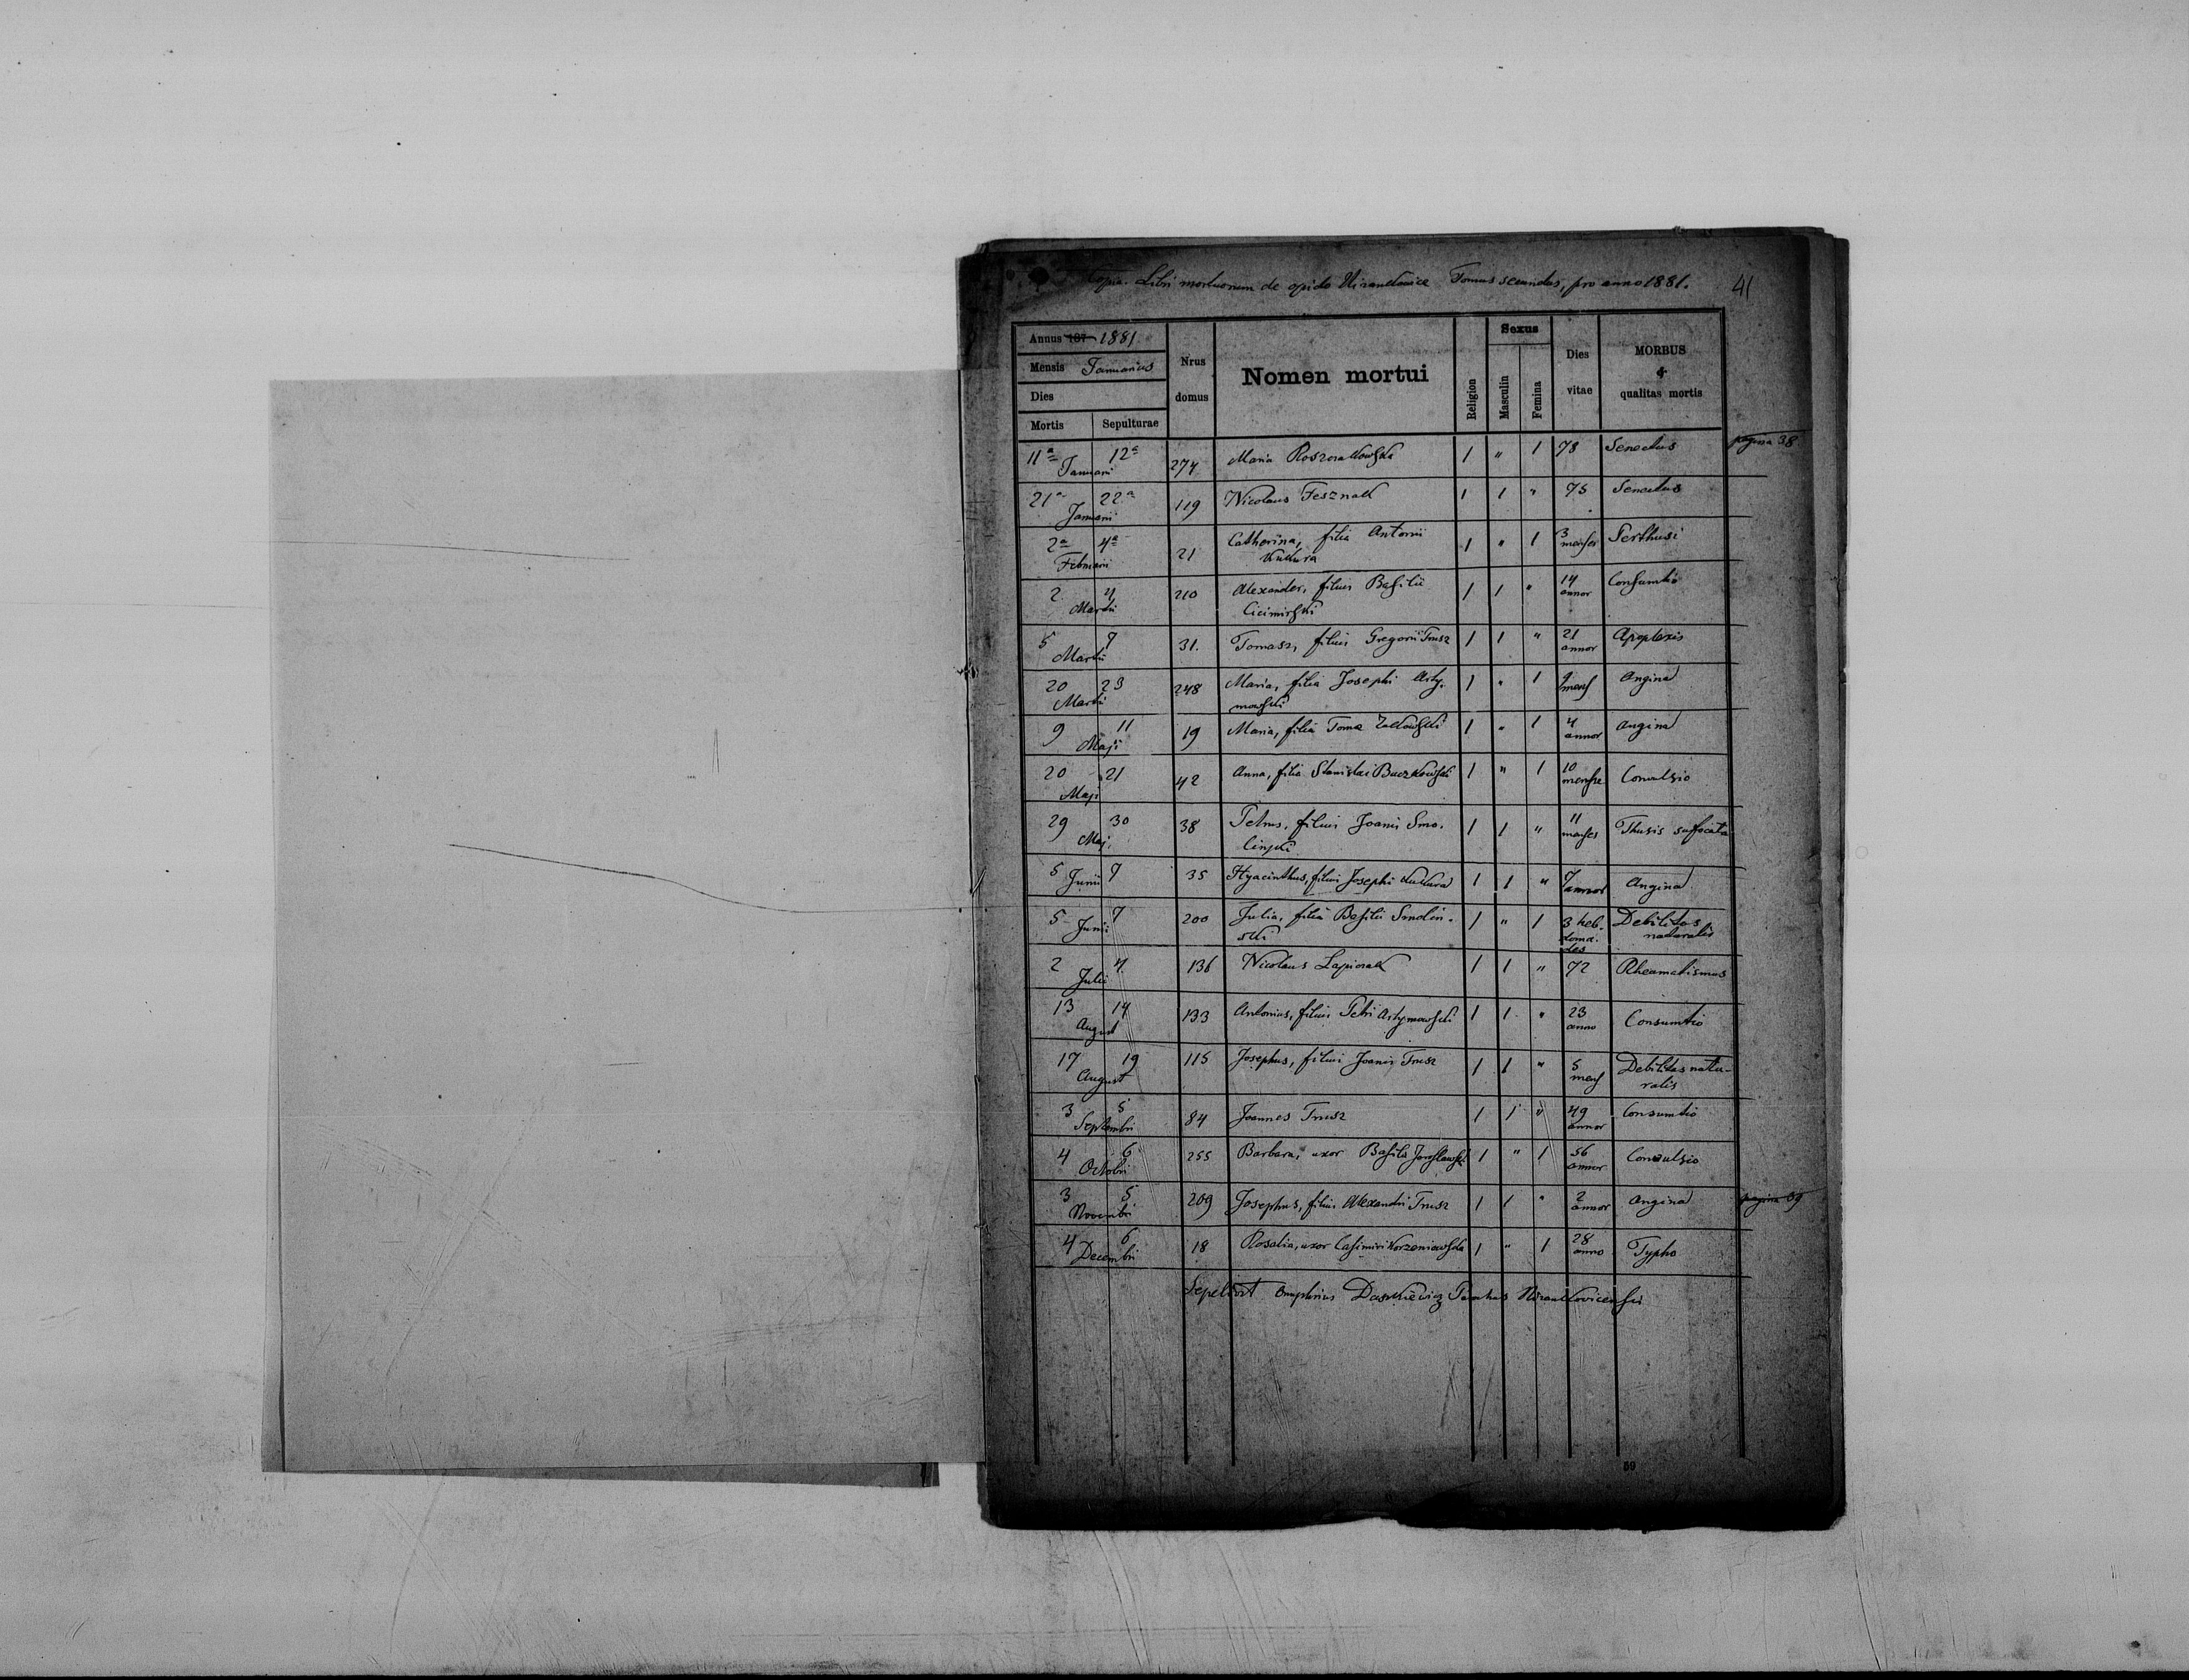 Copia Libri mortuorum de opido Nizankowice Tomus secundus, pro anno 1881.
41
Annus 187 1881.
Mensis Januarius
Dies
Mortis Sepulturae
Nrus domus
Nomen mortui
Religion
Sexus
Masculin
Femina
Dies vitae
MORBUS & qualitas mortis
11a 12a Januarii 274 Maria 1 " 1 78 Senectus pagina 38
21a 22a Januarii 119 Nicolaus Fesznak 1 1 " 75 Senectus
2a 4a Februarii 21 Catharina, filia Antonii
Kukura 1 " 1 3 menses
2 4 Martii 210 Alexander, filius Basilii
Cicimirski 1 1 " 14 annor Consumtio
5 7 Martii 31. Tomasz, filius Gregorii Trusz 1 1 " 21 annor Apoplexis
20 23 Martii 248 Maria, filia Josephi Arty-
mowski 1 " 1 9 mens Angina
9 11 Maji 19 Maria, filia Toma Zalkowski 1 " 1 4 annor Angina
20 21 Maji 42 Anna, filia Stanislai Buczkowski 1 " 1 10 mense Convulsio
29 30 Maj. 38 Petrus, filius Joanis Smo-
linski 1 1 " 11 menses Thusis suffocata
5 7 Junii 35 Hyacinthus, filius Josephi Kukura 1 1 " 7 annor Angina
5 7 Junii 200 Julia, filia Basilii Smolin-
ski 1 " 1 3 heb-
doma-
des Debilitas
naturalis
2 4 Julii 136 Nicolaus Lapiorak 1 1 " 72 Rheumatismus
13 14 August 133 Antonius, filius Petri Artymowski 1 1 " 23 anno Consumtio
17 19 August 115 Josephus, filius Joanis Trusz 1 1 " 5 mens Debilitas natu-
ralis
3 5 Septembri 84 Joannes Trusz 1 1 " 49 annor Consumtio
4 6 Octobri 255 Barbara, uxor Basilii Jaroslawski 1 " 1 56 annor Convulsio
3 5 Novembri 209 Josephus, filius Alexandri Trusz 1 1 " 2 annor Angina pagina 39
4 6 Decembri 18 Rosalia, uxor Casimiri Korzeniowska 1 " 1 28 anno Typho
Sepelivit Onuphrius Daszkiewicz Parochus Nizankovicensis
59